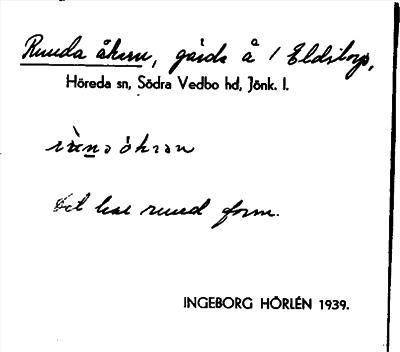 Runda åkern, gärde å 1 Eldstorp,
Höreda sn, Södra Vedbo hd, Jönk. l.
åkran
Det har rund form.
INGEBORG HÖRLÉN 1939.